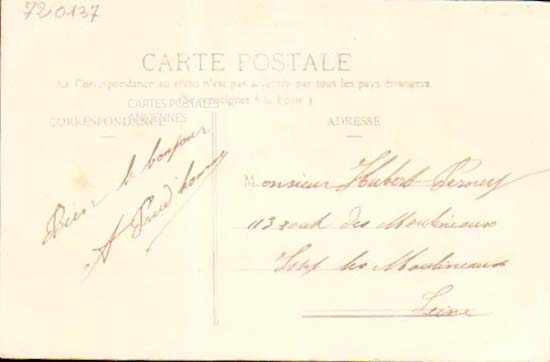 720137
CARTE POSTALE
La Correspondance au recto n'est pas acceptée par tous les pays étrangers
(Se renseigner à la Poste)
CARTES POSTALES
ANCIENNES
CORRESPONDANCE
Bien le bonjour
A Prud'homme
ADRESSE
Monsieur Hubert
113 route des Moulineaux
Issy les Moulineaux
Seine